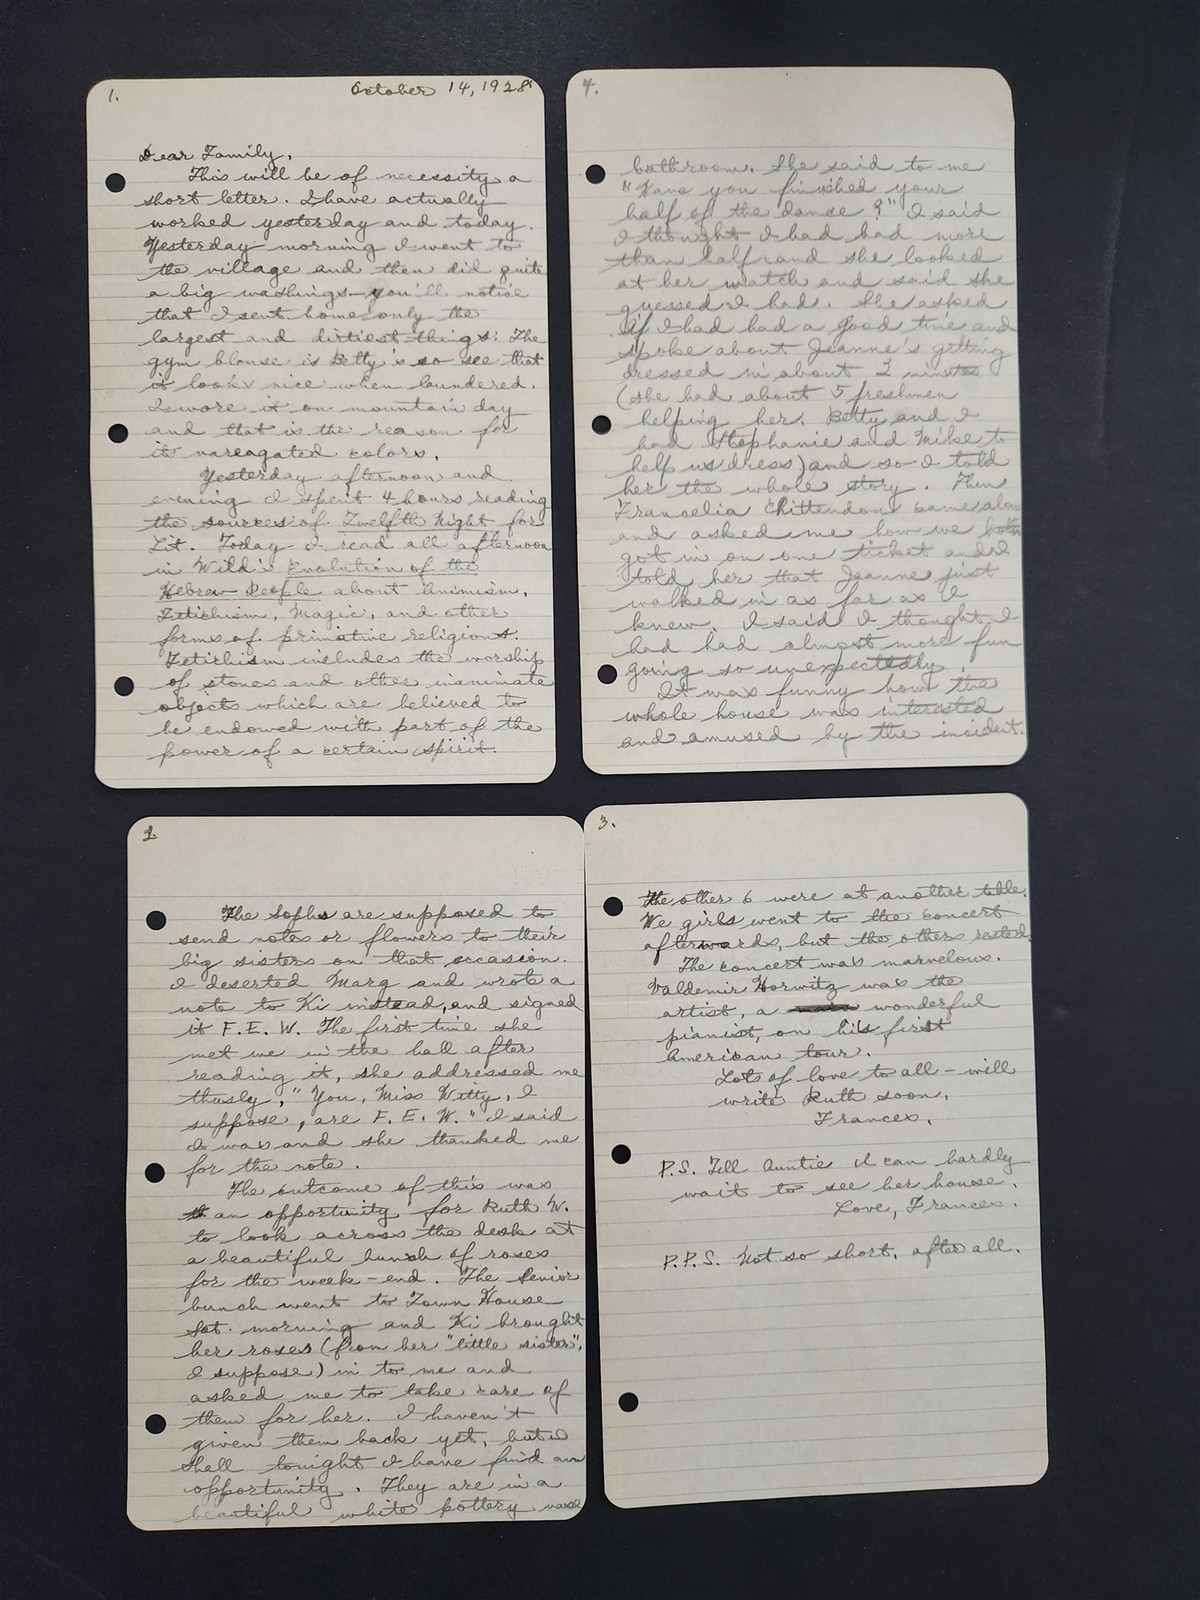 1.
October 14, 1928
Dear Family,
This will be of necessity a
short letter. I have actually
worked yesterday and today.
Yesterday morning I went to
the village and then did quite
a big washing - you'll notice
that I sent home only the
largest and dirtiest things. The
gym blouse is Betty's so see that
it looks nice when laundered.
I wore it on mountain day
and that is the reason for
its vareagated colors.
Yesterday afternoon and
evening I spent 4 hours reading
the sources of Twelfth Night for
Lit. Today I read all afternoon
in Wild's Evolution of the
Hebrew People about Animism,
Fetichism, Magic, and other
forms of primative religions.
Fetichism includes the worship
of stones and other inanimate
objects which are believed to
be endowed with part of the
power of a certain spirit.
4.
bathroom. She said to me
"Have you finished your
half of the dance?" I said
I thought I had had more
than half and she looked
at her watch and said she
guessed I had. She asked
if I had had a good time and
spoke about Jeanne's getting
dressed in about 2 minutes
(she had about 5 freshmen
helping her. Betty and I
had Stephanie and Mike to
help us dress) and so I told
her the whole story. Then
Francelia Chittendon came along
and asked me how we both
got in on one ticket and I
told her that Jeanne just
walked in as far as I
knew. I said I thought I
had had almost more fun
going so unexpectedly.
It was funny how the
whole house was interested
and amused by the incident.
2.
The Sophs are supposed to
send notes or flowers to their
big sisters on that occasion.
I deserted Marg and wrote a
note to Ki instead, and signed
it F.E.W. The first time she
met me in the hall after
reading it, she addressed me
thusly, "You, Miss Witty, I
suppose, are F.E.W." I said
I was and she thanked me
for the note.
The outcome of this was
an opportunity for Ruth W.
to look across the desk at
a beautiful bunch of roses
for the week-end. The Senior
bunch went to Town House
Sat. morning and Ki brought
her roses (from her "little sister",
I suppose) in to me and
asked me to take care of
them for her. I haven't
given them back yet, but I
shall tonight I have find an
opportunity. They are in a
beautiful white pottery vase
3.
The other 6 were at another table.
We girls went to the concert
afterwards, but the others rested.
The concert was marvelous.
Valdemir Horwitz was the
artist, a wonderful
pianist, on his first
American tour.
Lots of love to all - will
write Ruth soon.
Frances.
P.S. Tell Auntie I can hardly
wait to see her house.
Love, Frances.
P.P.S. Not so short, after all.